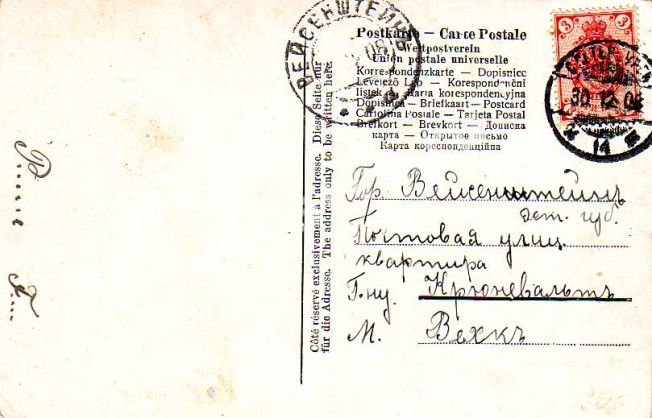 Postkarte — Carte Postale
Weltpostverein
Union postale universelle
Korrespondenzkarte — Dopisnice
Levelező Lap — Korespondenční
listek — Karta korespondencyjna
Dopisnica — Briefkaart — Postcard
Cartolina Postale — Tarjeta Postal
Brefkort — Brevkort — Дописна
карта — Открытое письмо
Карта кореспонденційна
ВЕЙСЕНШТЕЙНЪ
3 3
30 12 04
14
Côté réservé exclusivement à l'adresse. Diese Seite nur
für die Adresse. The address only to be written here.
Гор. Вейсенштейнъ
Эст. губ.
Почтовая улиц.
квартира
Г-ну. Крюневальтъ
М. Веккъ